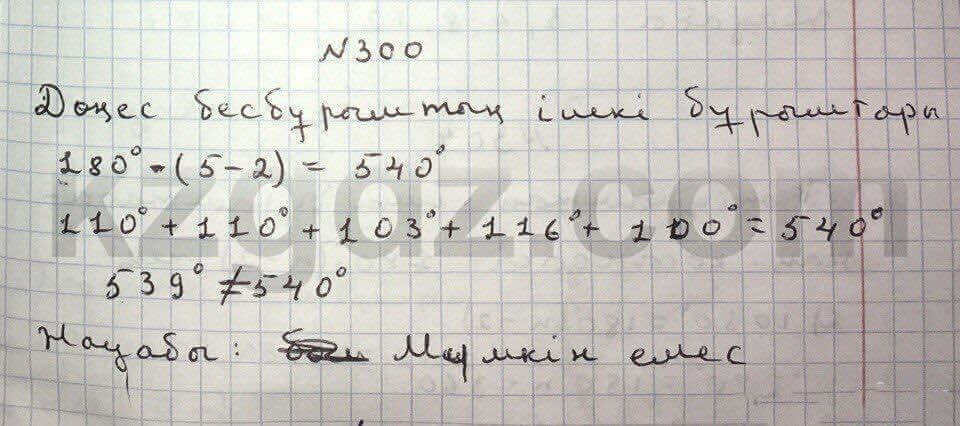 N300
Дөңес бесбұрыштың ішкі бұрыштары
180°·(5-2) = 540°
110° + 110° + 103° + 116° + 100° = 540°
539° ≠ 540°
Жауабы: Мүмкін емес
kzgdz.com